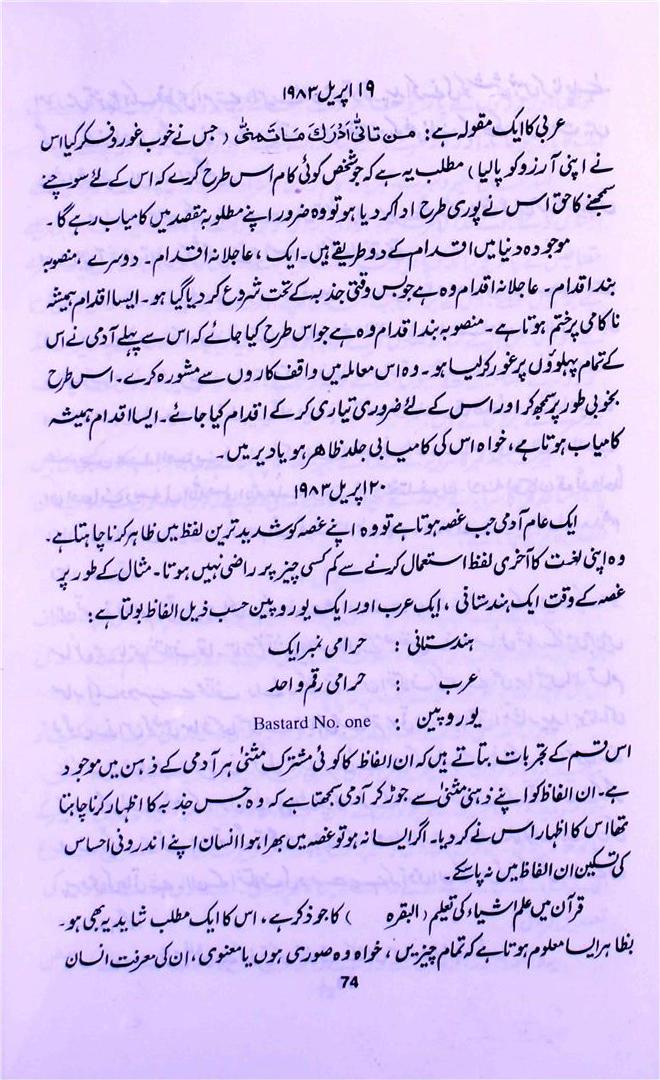 ۱۹ اپریل ۱۹۸۳
عربی کا ایک مقولہ ہے: من تانّٰی ادرك ما تمنّٰی (جس نے خوب غور و فکر کیا اس
نے اپنی آرزو کو پالیا) مطلب یہ ہے کہ جو شخص کوئی کام اس طرح کرے کہ اس کے لئے سوچنے
سمجھنے کا حق اس نے پوری طرح ادا کر دیا ہو تو وہ ضرور اپنے مطلوبہ مقصد میں کامیاب رہے گا۔
موجودہ دنیا میں اقدام کے دو طریقے ہیں۔ ایک، عاجلانہ اقدام۔ دوسرے، منصوبہ
بند اقدام۔ عاجلانہ اقدام وہ ہے جو بس وقتی جذبہ کے تحت شروع کر دیا گیا ہو۔ ایسا اقدام ہمیشہ
ناکامی پر ختم ہوتا ہے۔ منصوبہ بند اقدام وہ ہے جو اس طرح کیا جائے کہ اس سے پہلے آدمی نے اس
کے تمام پہلوؤں پر غور کر لیا ہو۔ وہ اس معاملہ میں واقف کاروں سے مشورہ کرے۔ اس طرح
بخوبی طور پر سمجھ کر اور اس کے لئے ضروری تیاری کر کے اقدام کیا جائے۔ ایسا اقدام ہمیشہ
کامیاب ہوتا ہے، خواہ اس کی کامیابی جلد ظاہر ہو یا دیر میں۔
۲۰ اپریل ۱۹۸۳
ایک عام آدمی جب غصہ ہوتا ہے تو وہ اپنے غصہ کو شدید ترین لفظ میں ظاہر کرنا چاہتا ہے۔
وہ اپنی لغت کا آخری لفظ استعمال کرنے سے کم کسی چیز پر راضی نہیں ہوتا۔ مثال کے طور پر
غصہ کے وقت ایک ہندستانی، ایک عرب اور ایک یوروپین حسب ذیل الفاظ بولتا ہے:
ہندستانی : حرامی نمبر ایک
عرب : حرامی رقم واحد
یوروپین : Bastard No. one
اس قسم کے تجربات بتاتے ہیں کہ ان الفاظ کا کوئی مشترک مثنیٰ ہر آدمی کے ذہن میں موجود
ہے۔ ان الفاظ کو اپنے ذہنی مثنیٰ سے جوڑ کر آدمی سمجھتا ہے کہ وہ جس جذبہ کا اظہار کرنا چاہتا
تھا اس کا اظہار اس نے کر دیا۔ اگر ایسا نہ ہو تو غصہ میں بھرا ہوا انسان اپنے اندرونی احساس
کی تسکین ان الفاظ میں نہ پا سکے۔
قرآن میں علم اشیاء کی تعلیم (البقرہ ) کا جو ذکر ہے، اس کا ایک مطلب شاید یہ بھی ہو۔
بظاہر ایسا معلوم ہوتا ہے کہ تمام چیزیں، خواہ وہ صوری ہوں یا معنوی، ان کی معرفت انسان
74